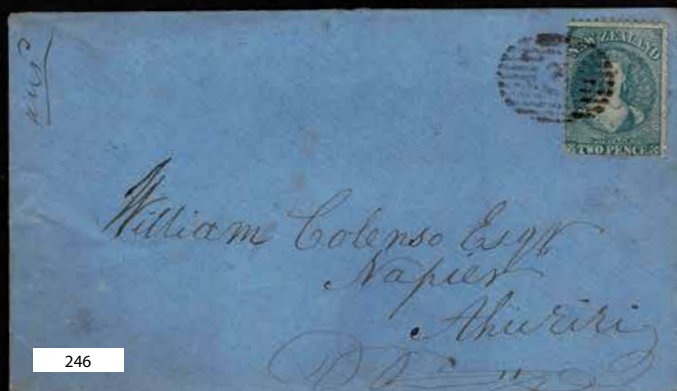 NEW ZEALAND
TWO PENCE
William Colenso Esqr
Napier
Ahuriri
246